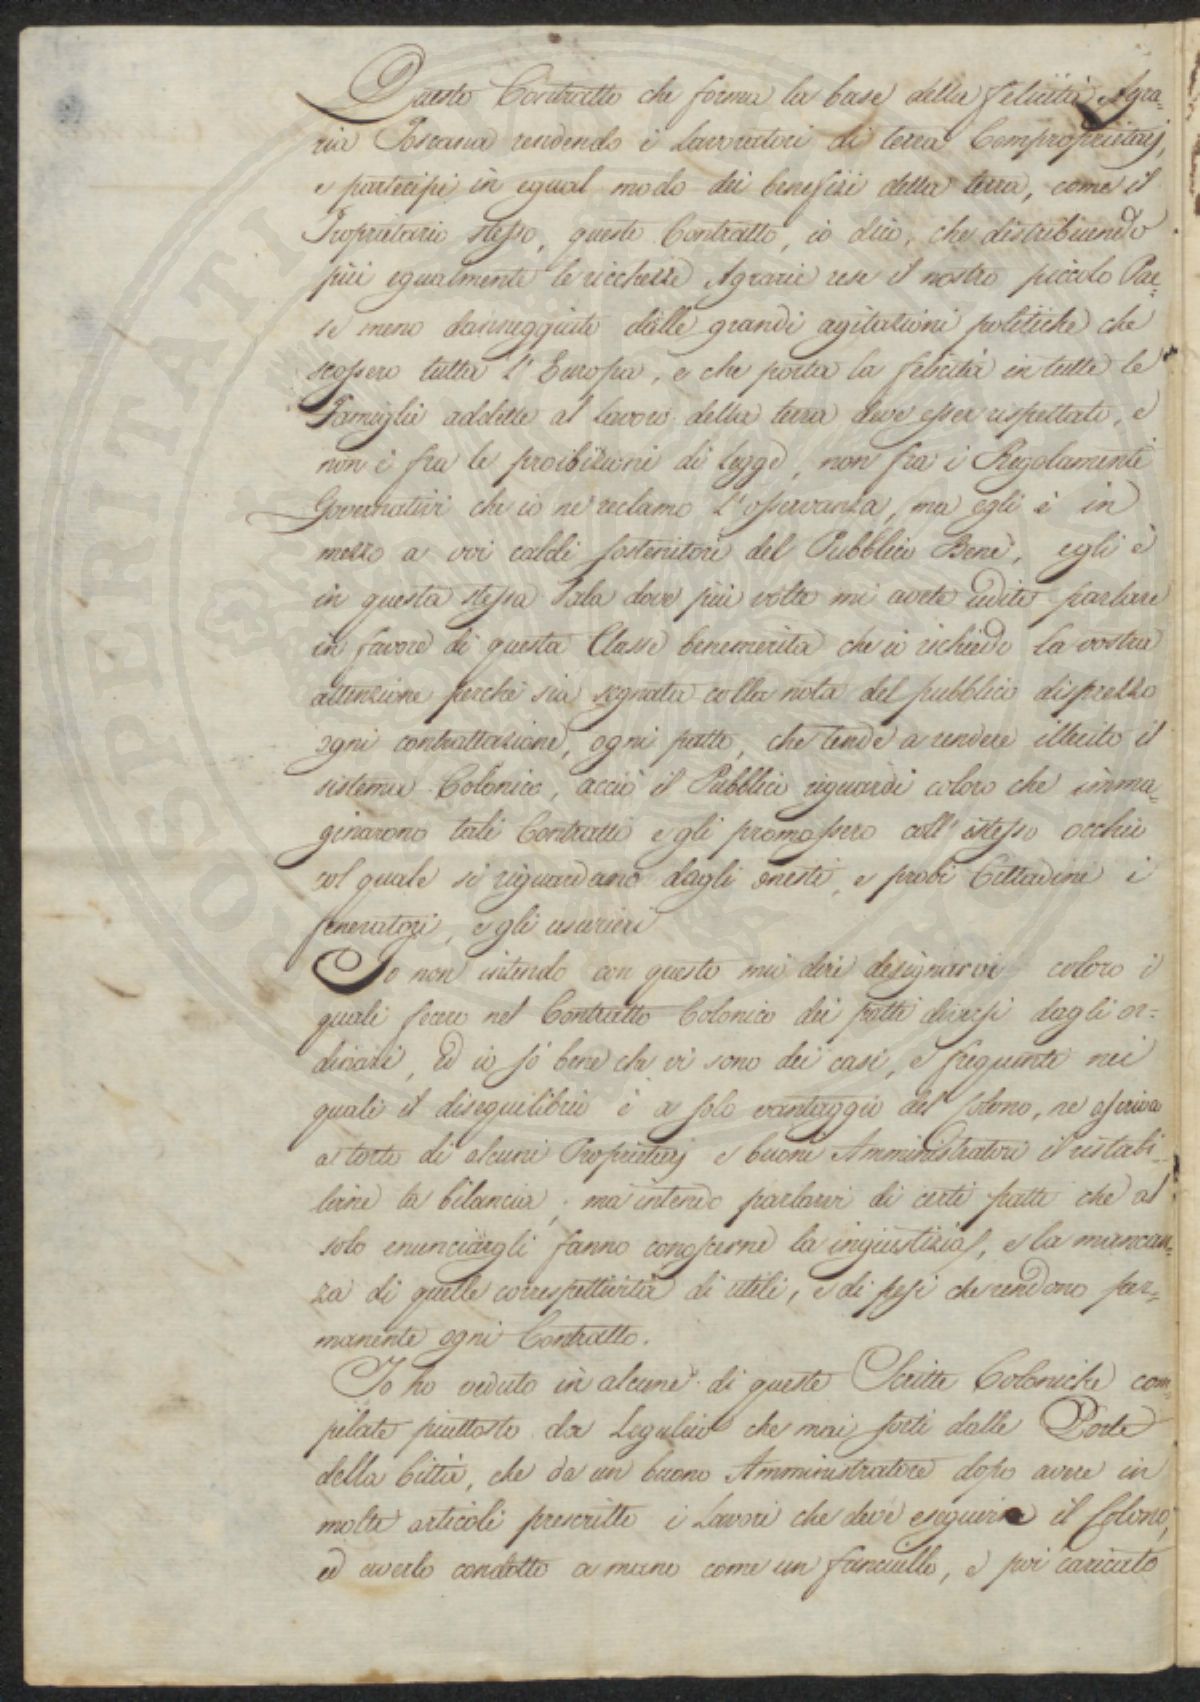 Questo Contratto che forma la base della felicità Agra=
ria Toscana rendendo i Lavoratori di terra Comproprietarj,
e partecipi in egual modo dei benefizi della terra, come il
Proprietario stesso, questo Contratto, io dico, che distribuendo
più egualmente le ricchezze Agrarie rese il nostro piccolo Pae=
se meno danneggiato dalle grandi agitazioni politiche che
scossero tutta l'Europa, e che porta la felicità in tutte le
Famiglie addette al lavoro della terra deve esser rispettato, e
non è fra le proibizioni di Legge, non fra i Regolamenti
Governativi che io ne reclamo l'osservanza, ma egli è in
mezzo a voi caldi sostenitori del Pubblico Bene, egli è
in questa stessa Sala dove più volte mi avete udito parlare
in favore di questa Classe benemerita che io richiedo la vostra
attenzione perchè sia segnata colla nota del pubblico disprezzo
ogni contrattazione, ogni patto, che tende a rendere illecito il
sistema Colonico, acciò il Pubblico riguardi coloro che imma=
ginarono tali Contratti e gli promossero coll'istesso occhio
col quale si riguardano dagli onesti, e probi Cittadini i
feneratori, e gli usurieri
Io non intendo con questo mio dire designarvi coloro i
quali fecero nel Contratto Colonico dei patti diversi dagli or=
dinari, ed io sò bene che vi sono dei casi, e frequenti nei
quali il disequilibrio è a solo vantaggio del Colono, ne ascrivo
a torto di alcuni Proprietarj e buoni Amministratori il ristabi=
lirne la bilancia, ma intendo parlarvi di certi patti che al
solo enunciargli fanno conoscerne la ingiustizia, e la mancan=
za di quelle correspettività di utili, e di pesi che rendono per=
manente ogni Contratto.
Io ho veduto in alcune di queste Scritte Coloniche com=
pilate piuttosto da Leguleio che mai sortì dalle Porte
della Città, che da un buono Amministratore dopo avere in
molti articoli prescritto i Lavori che deve eseguire il Colono,
ed averlo condotto a mano come un fanciullo, e poi caricato